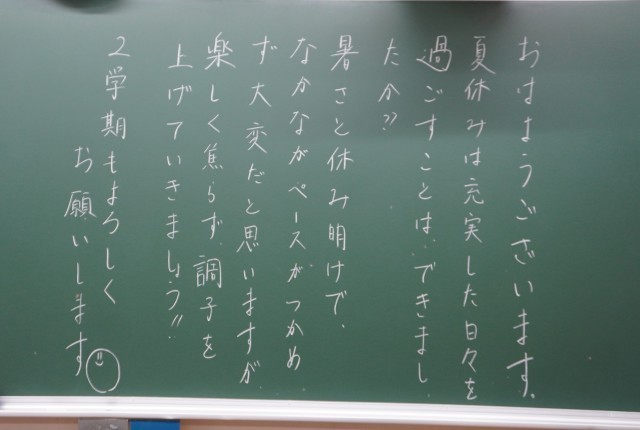 おはようございます。
夏休みは充実した日々を
過ごすことは、できまし
たか??
暑さと休み明けで、
なかなかペースがつかめ
ず大変だと思いますが
楽しく焦らず、調子を
上げていきましょう!!
2学期もよろしく
お願いします